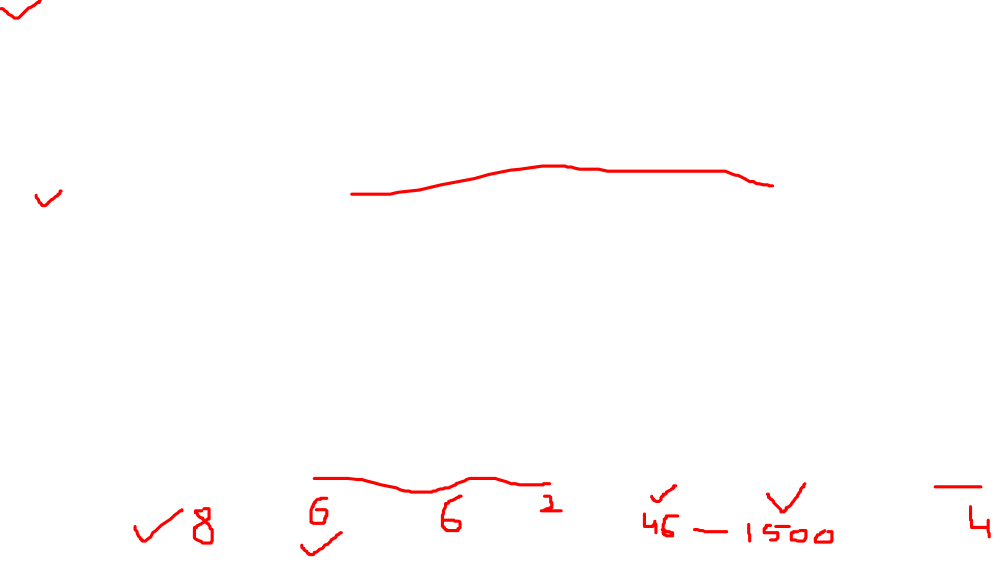 8 6 6 2 46 - 1500 4